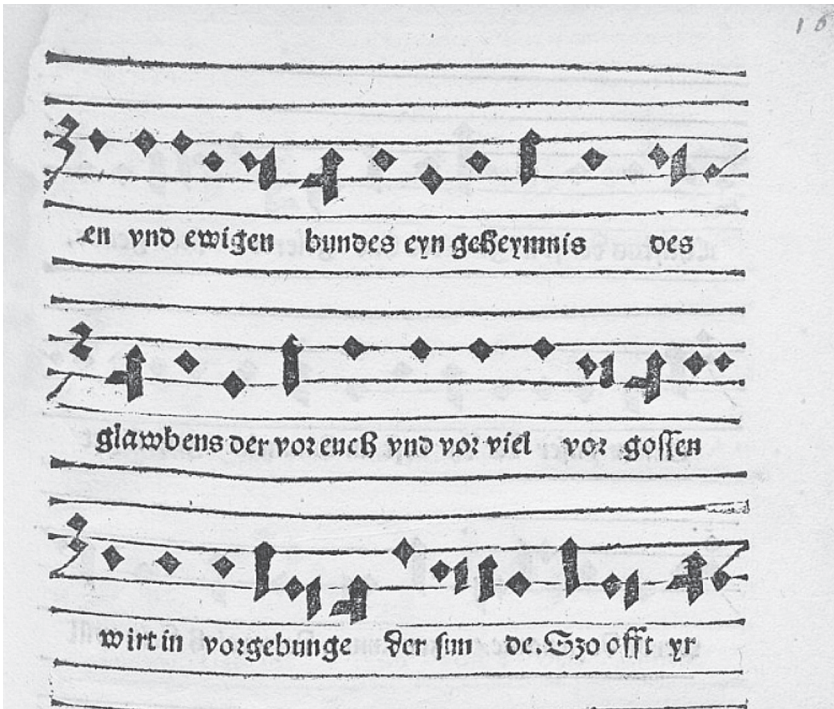 en vnd ewigen bundes eyn geheymnis des
glawbens der vor euch vnd vor viel vor gossen
wirt in vorgebunge der sun de. Szo offt yr